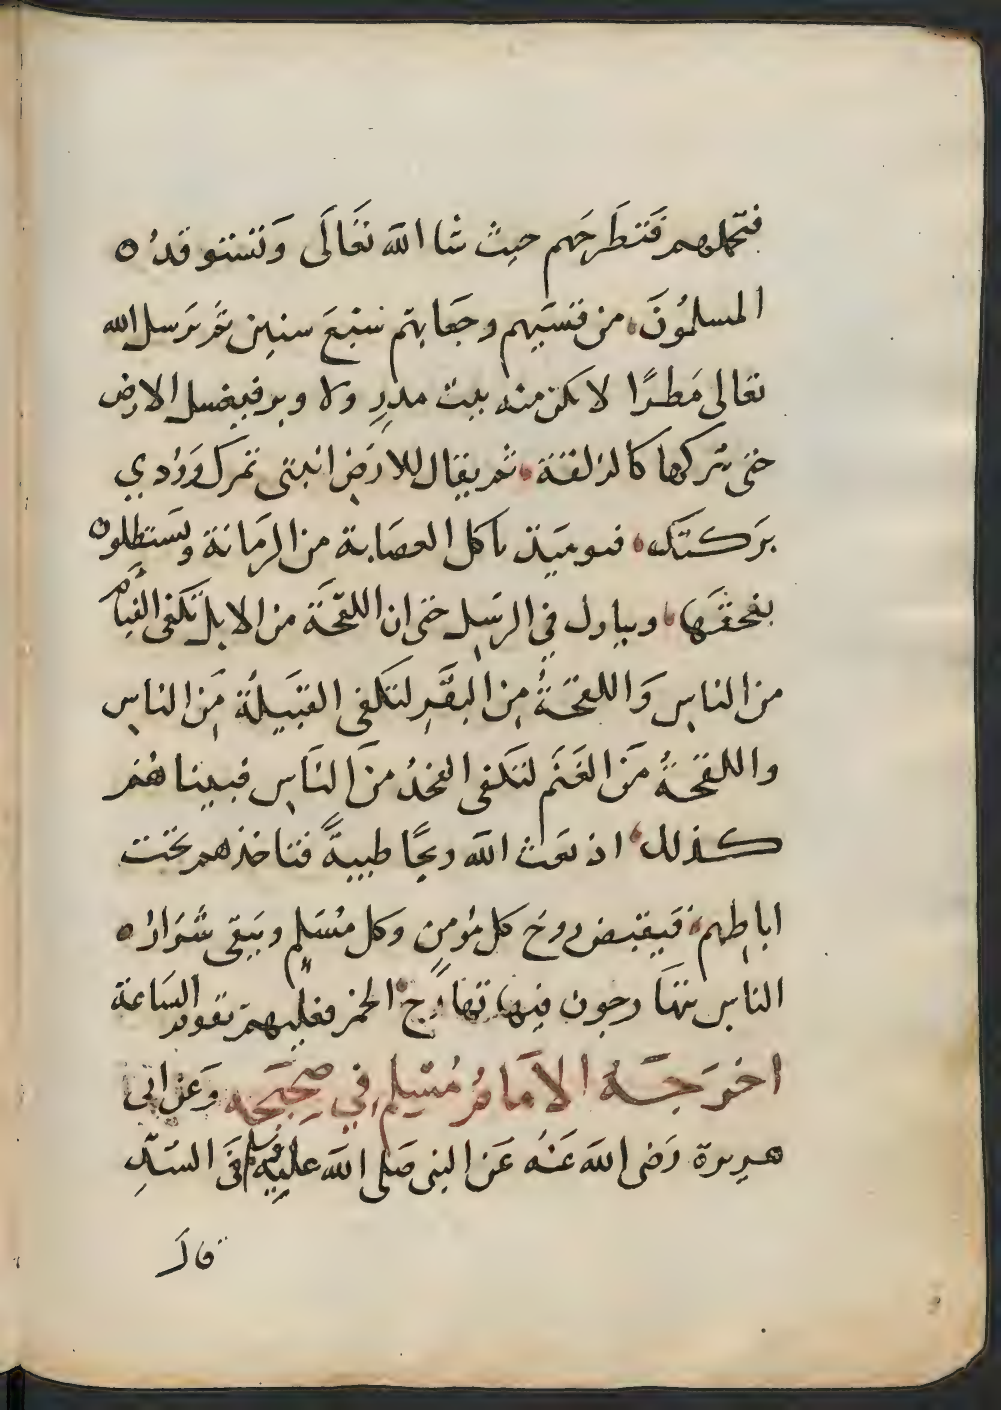 فتحملهم فتطرحهم حيث شا الله تعالى وتستوقد
المسلمون من قسيهم وجعابهم سبع سنين ثم يرسل الله
تعالى مطرًا لا يكن منه بيت مدر ولا وبر فيغسل الارض
حتى يتركها كالزلفة ثم يقال للارض انبتي ثمرك وردي
بركتك فيوميذ تاكل العصابة من الرمانة ويستظلون
بقحفها ويبارك في الرسل حتى ان اللقحة من الابل لتكفى الفيام
من الناس واللقحة من البقر لتكفى القبيلة من الناس
واللقحة من الغنم لتكفى الفخذ من الناس فبينا هم
كذلك اذ بعث الله ريحًا طيبة فتاخذهم تحت
اباطهم فيقبض روح كل مؤمن وكل مسلم ويبقى شرار
الناس يتهارجون فيها تهارج الحمر فعليهم تقوم الساعة
اخرجه الامام مسلم في صحيحه وعن ابى
هريرة رضى الله عنه عن النبى صلى الله عليه وسلم في السد
قال